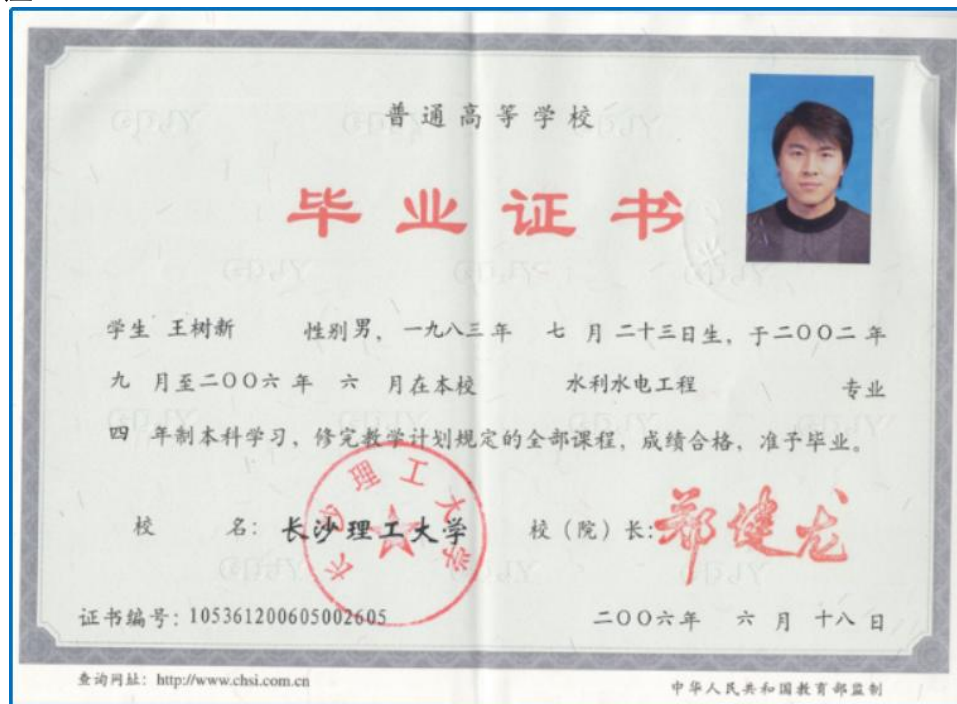 普通高等学校
毕业证书
学生 王树新 性别男，一九八三年 七 月二十三日生，于二〇〇二年
九 月至二〇〇六年 六 月在本校 水利水电工程 专业
四 年制本科学习，修完教学计划规定的全部课程，成绩合格，准予毕业。
校 名：长沙理工大学 校（院）长：郑健龙
长沙理工大学
证书编号：105361200605002605 二〇〇六年 六 月 十八 日
查询网址：http://www.chsi.com.cn 中华人民共和国教育部监制